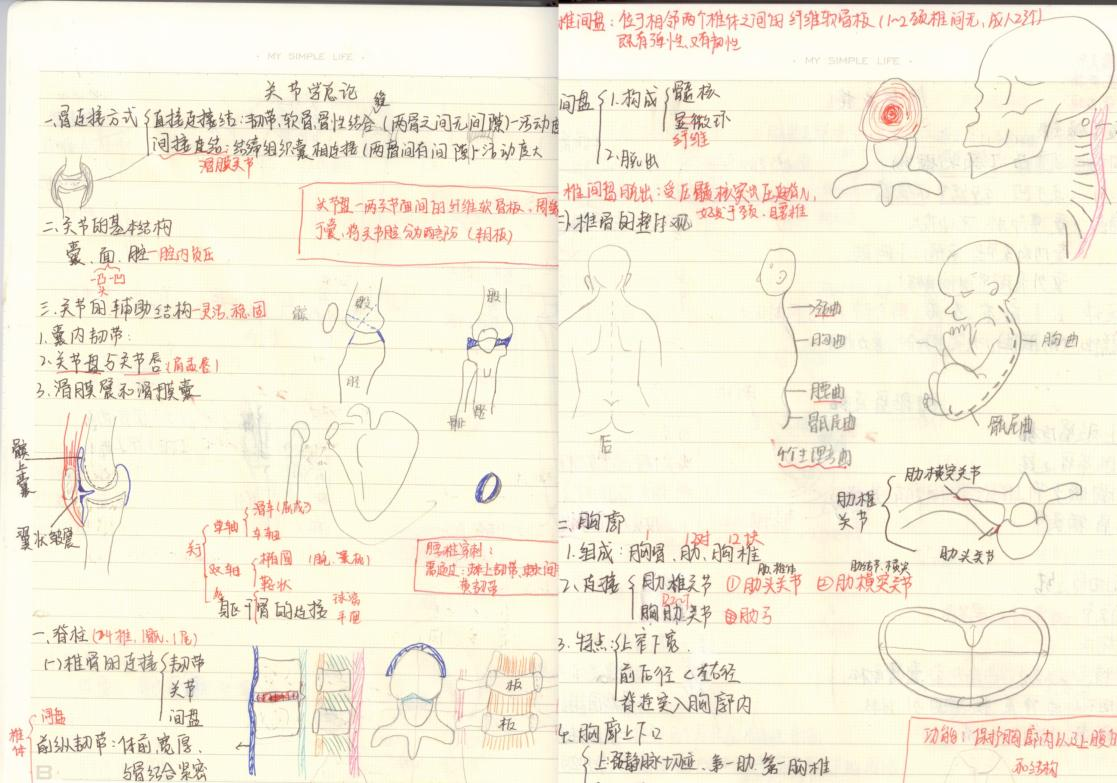 · MY SIMPLE LIFE ·
关节学总论
一、骨连接方式
直接连接结:韧带、软骨、骨性结合(两骨之间无间隙)—活动度
缝
间接连结:结缔组织囊相连接(两骨间有间隙)—活动度大
滑膜关节
关节盘—两关节面间的纤维软骨板、周缘
于囊、将关节腔分为两部份(半月板)
二、关节的基本结构
囊、面、腔—腔内负压
一凸一凹
头
三、关节的辅助结构—灵活、稳固
1. 囊内韧带:
2. 关节盘与关节唇(肩盂唇)
3. 滑膜襞和滑膜囊
髌
股
胫
股
腓
胫
髌上囊
翼状皱襞
关节
单轴
滑车(屈戌)
车轴
双轴
椭圆
鞍状
多
腰椎穿刺:
需通过:棘上韧带、棘间
黄韧带
躯干骨的连接
一、脊柱(24椎、1骶、1尾)
(一)椎骨的连接
韧带
关节
间盘
椎体
间盘
前纵韧带:体前、宽厚、
与骨结合紧密
板
板
椎间盘:位于相邻两个椎体之间的纤维软骨板(1~2颈椎间无,成人23个)
既有弹性、又有韧性
· MY SIMPLE LIFE ·
间盘
1. 构成
髓核
显微环
纤维
2. 脱出
椎间盘脱出:受压髓核突出压迫N,
好发于颈、腰椎
(二)椎骨的整体观
后
颈曲
胸曲
腰曲
骶尾曲
个生理弯曲
胸曲
骶尾曲
二、胸廓
1. 组成:胸骨、肋、胸椎
1 12对 12块
2、连接
肋椎关节 ①肋头关节 ②肋横突关节
胸肋关节
肋弓
3. 特点:上窄下宽、
前后径<左右径
脊柱突入胸廓内
4. 胸廓上下口
上:颈静脉切迹、第一肋、第一胸椎
肋椎关节
肋横突关节
肋头关节
功能:保护胸廓内以及上腹部
和结构